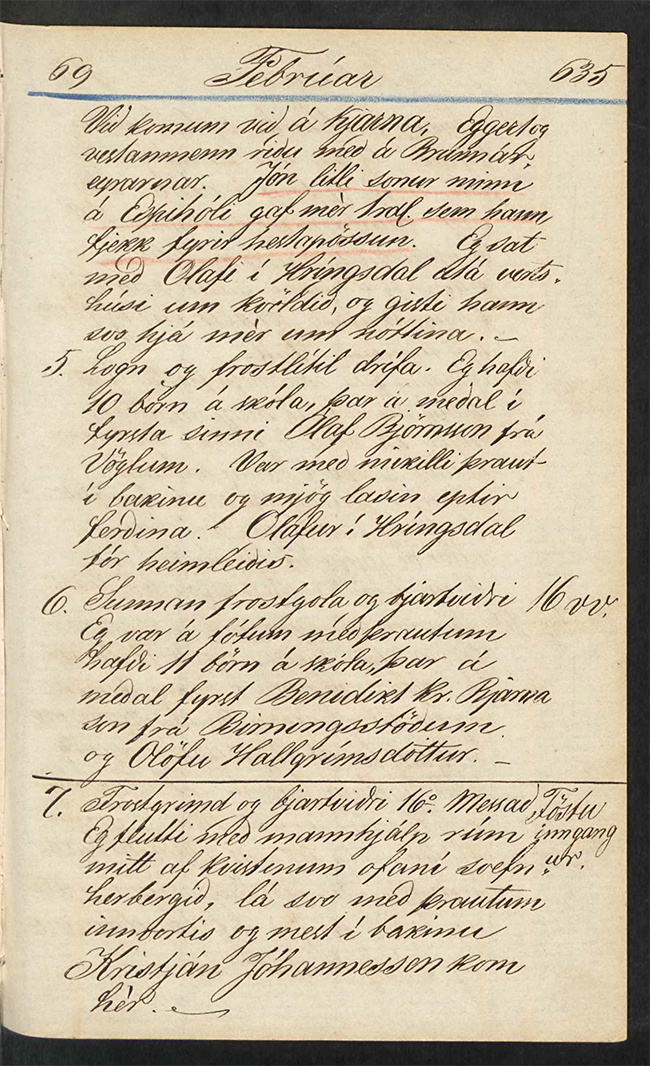 69 Februar 635
Við komum við á Kjarna, Eggert og
vestanmenn riðu með á Brunnár
eyrarnar. Jón litli sonur minn
á Espihóli gaf mèr 1rdl. sem hann
fjekk fyrir hestapössun. Eg sat
með Olafi í Hríngsdal útá veits-
húsi um kvöldið, og gisti hann
svo hjá mèr um nóttina. –
5. Logn og frostlítil drífa. Eg hafði
10 börn á skóla, þar á meðal í
fyrsta sinni Olaf Björnsson frá
Vöglum. Var með mikilli þraut
í bakinu og mjög lasin eptir
ferðina. Olafur í Hríngsdal
fór heimleiðis.
6. Sunnan frostgola og bjartviðri 16 vv.
Eg var á fótum með þrautum
hafði 11 börn á skóla, þar á
meðal fyrst Benidikt Kr. Bjarna
son frá Birningsstöðum
og Olöfu Hallgrímsdóttur. –
7. Frostgrimd og bjartviðri 16°. Messað, Föstu
Eg flutti með mannhjálp rúm inngang
mitt af kvistinum ofaní svefn- ur.
herbergið, lá svo með þrautum
innvortis og mest í bakinu
Kristján Jóhannessen kom
hèr. –